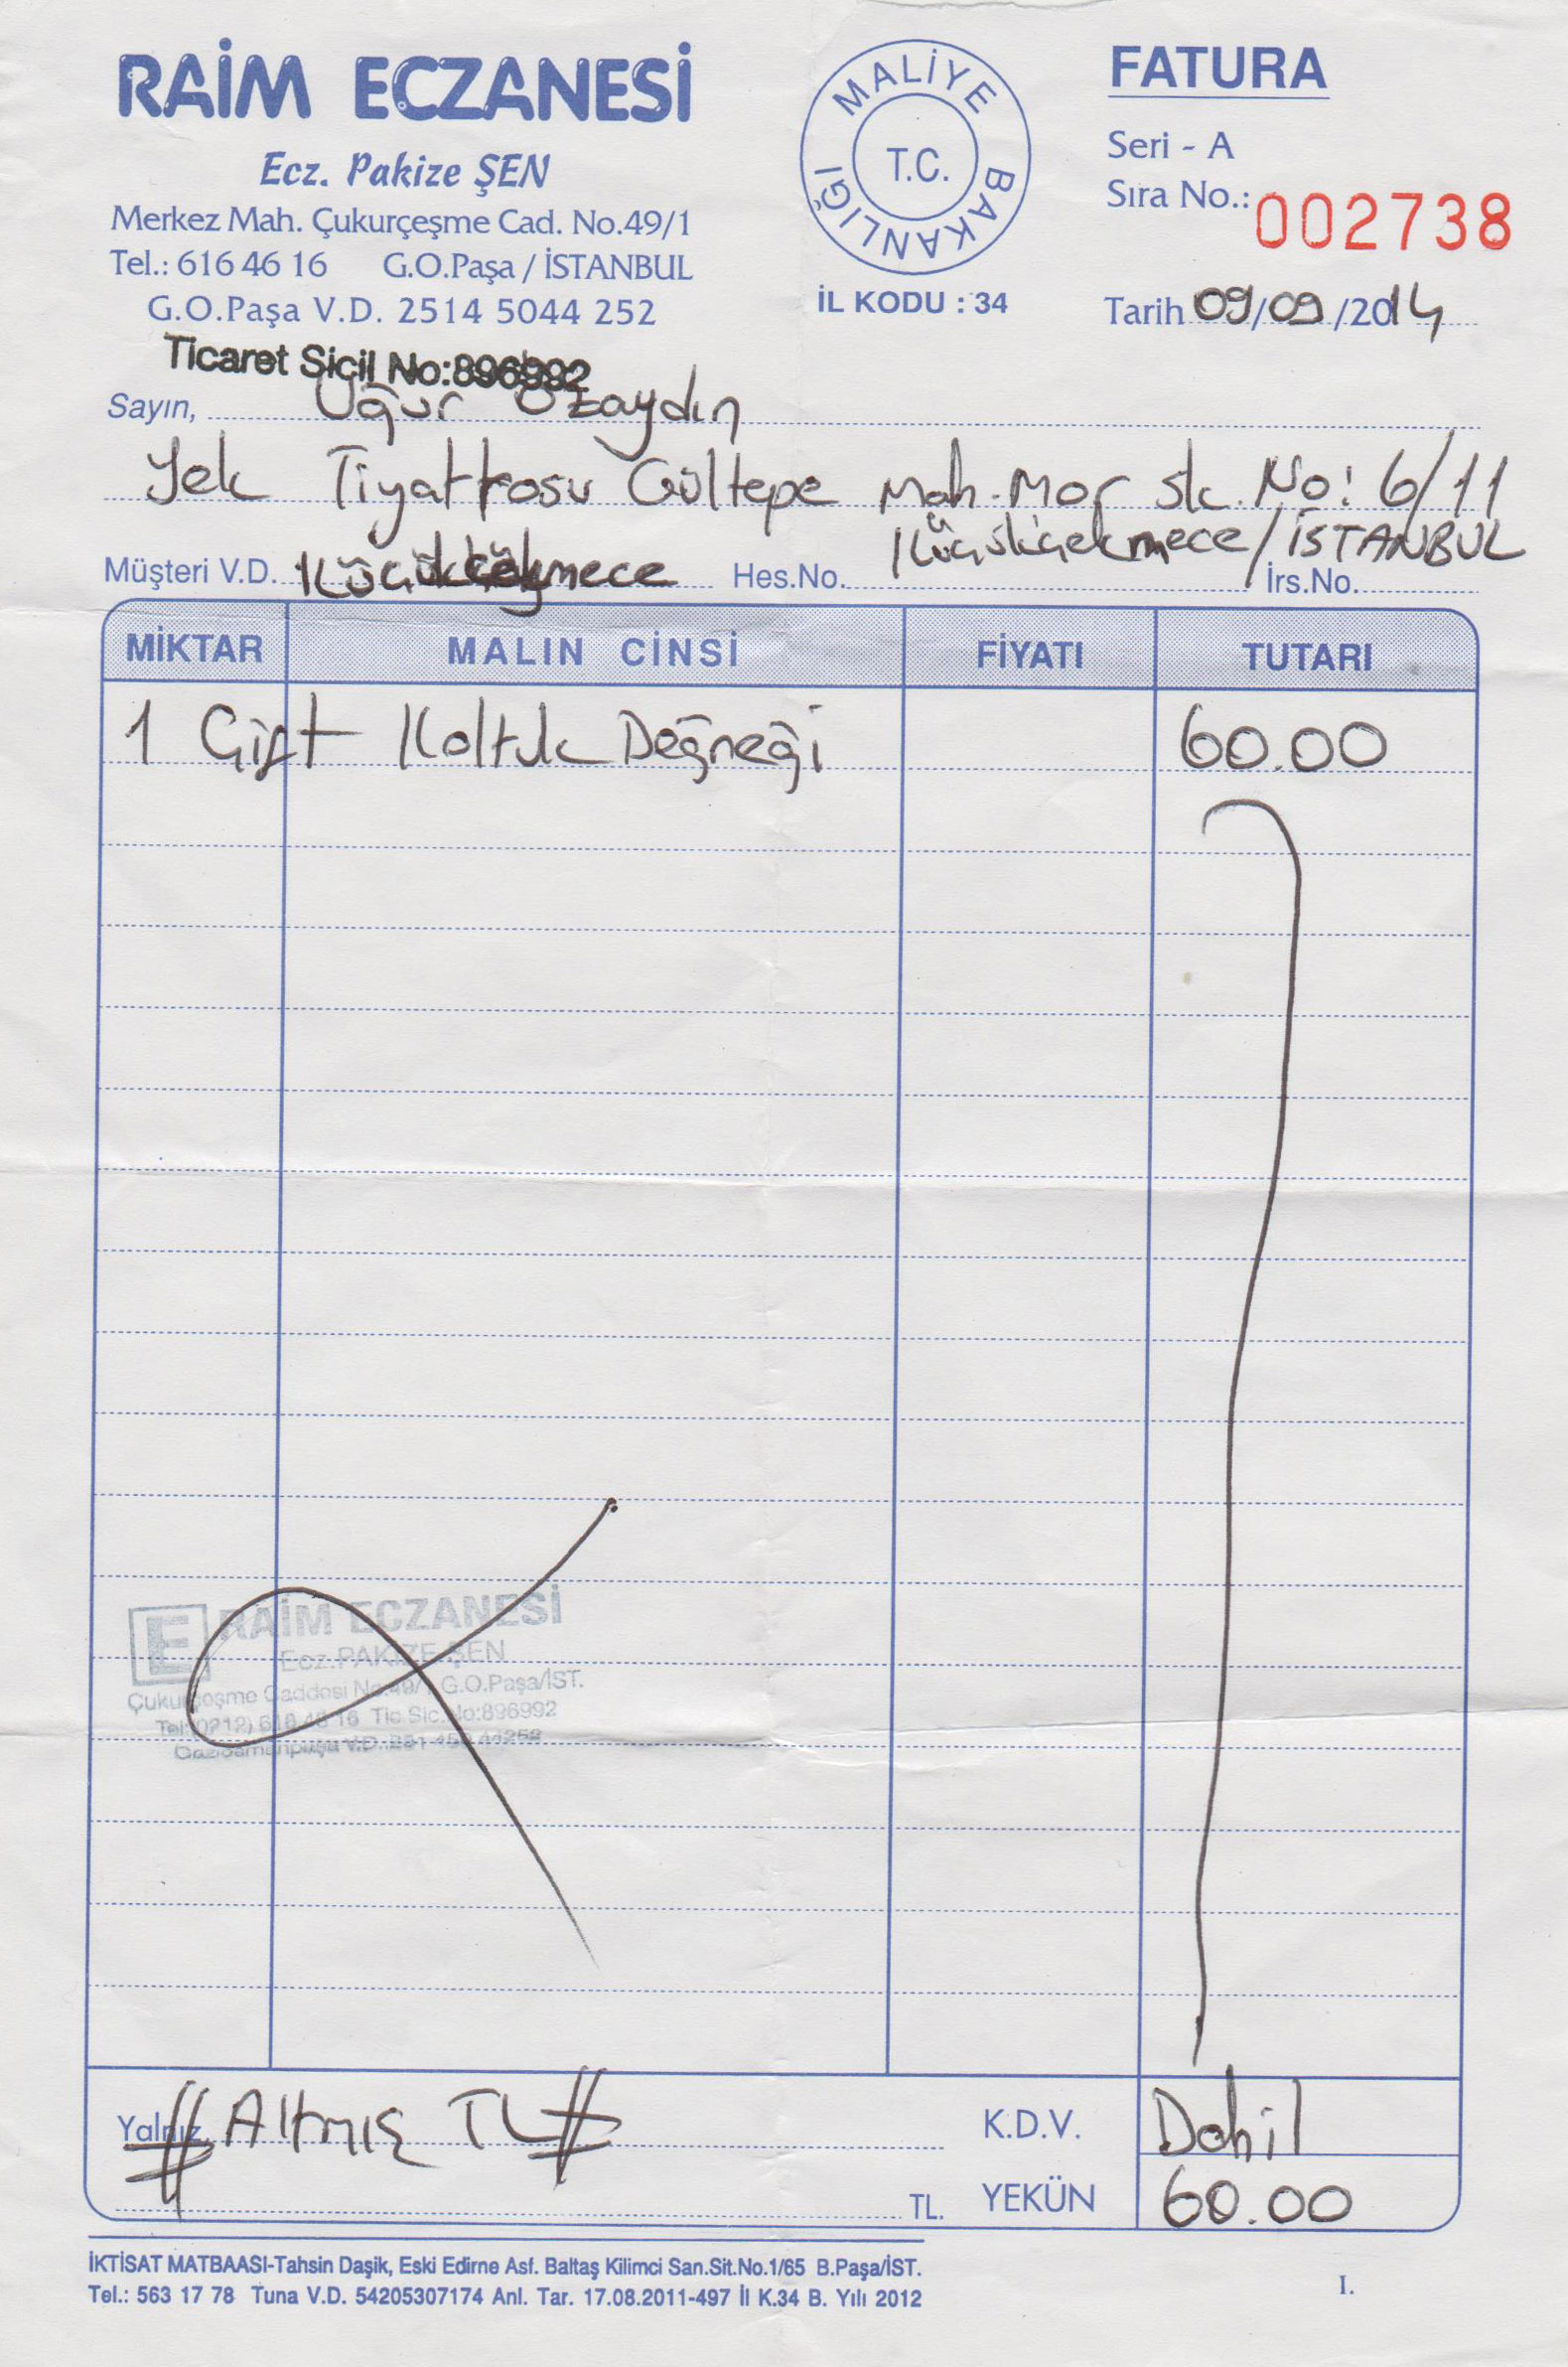 RAİM ECZANESİ
Ecz. Pakize ŞEN
Merkez Mah. Çukurçeşme Cad. No.49/1
Tel.: 616 46 16 G.O.Paşa / İSTANBUL
G.O.Paşa V.D. 2514 5044 252
Ticaret Sicil No:896992
MALİYE BAKANLIĞI
T.C.
İL KODU : 34
FATURA
Seri - A
Sıra No.: 002738
Tarih 09/09/2014
Sayın, Uğur Özaydın
Yek Tiyatrosu Gültepe Mah. Mor sk. No: 6/11
Küçükçekmece/İSTANBUL
Müşteri V.D. Küçükçekmece Hes.No. İrs.No.
MİKTAR MALIN CİNSİ FİYATI TUTARI
1 Çift Koltuk Değneği 60.00
E RAİM ECZANESİ
Ecz.PAKİZE ŞEN
Çukurçeşme Caddesi No:49/1 G.O.Paşa/İST.
Tel:(0212) 616 46 16 Tic Sic. No:896992
Gaziosmanpaşa V.D.
Yalnız, #Altmış TL# K.D.V. Dahil
TL. YEKÜN 60.00
İKTİSAT MATBAASI-Tahsin Daşik, Eski Edirne Asf. Baltaş Kilimci San.Sit.No.1/65 B.Paşa/İST.
Tel.: 563 17 78 Tuna V.D. 54205307174 Anl. Tar. 17.08.2011-497 İl K.34 B. Yılı 2012
I.